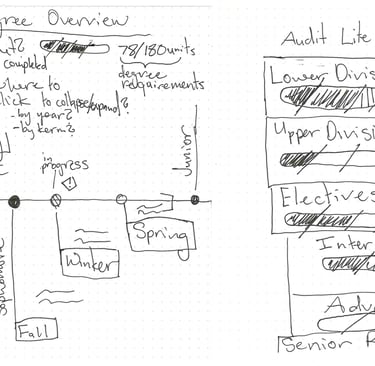 gree Overview
ut?
completed
78/180 units
degree
requirements
where to
click to collapse/expand?
- by year?
- by term?
in
progress
Junior
Spring
Winter
Sophomore
Fall
Audit Lite
Lower Divis
Upper Divisi
Electives
Inter
Adv
Senior R